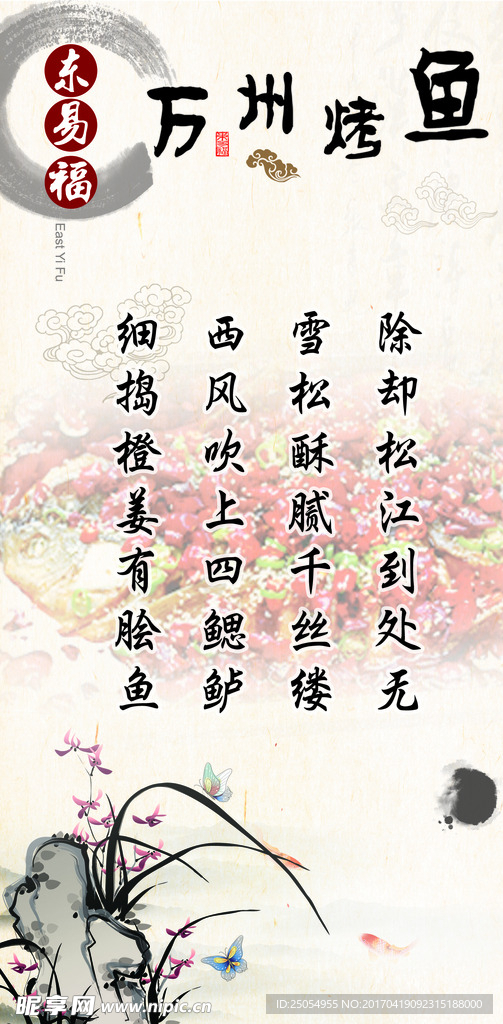 东易福
East Yi Fu
万州烤鱼
细捣橙姜有脍鱼
西风吹上四鳃鲈
雪松酥腻千丝缕
除却松江到处无
昵享网 www.nipic.cn
ID:25054955 NO:20170419092315188000